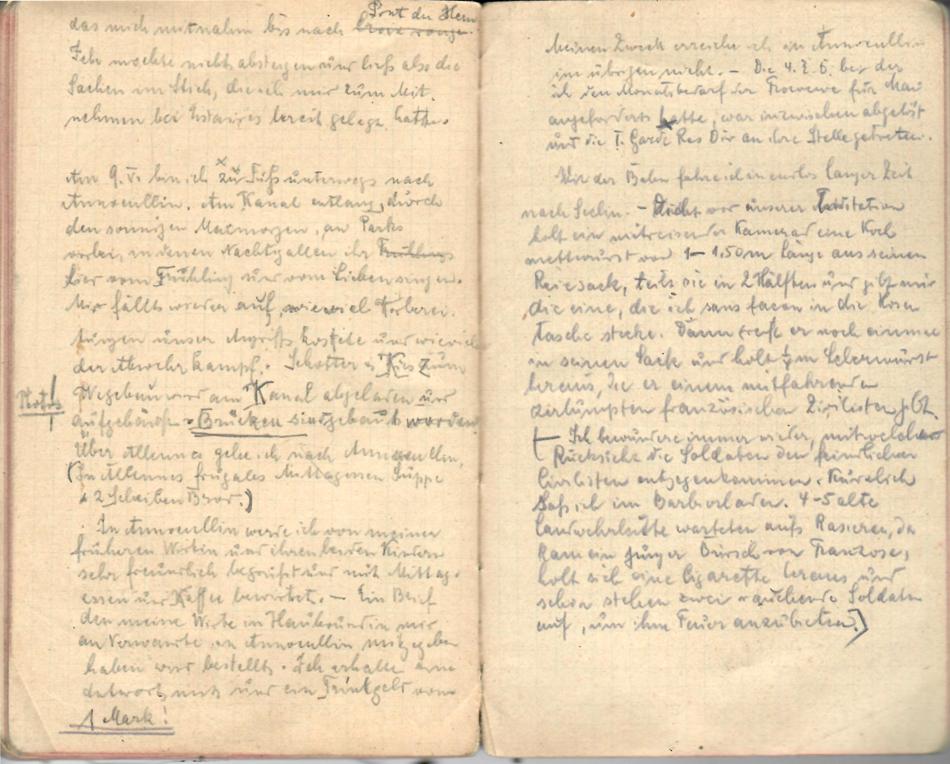 das mich mitnahm bis nach Pont du Hem
Croix rouge.
Ich mochte nicht absteigen und liess also die
Sachen im Stich, die ich mir zum Mit-
nehmen bei Estaires bereit gelegt hatte.
Am 9. V. bin ich zu Fuss unterwegs nach
Annoeullin. Am Kanal entlang, durch
den sonnigen Maimorgen, an Parks
vorbei, in denen Nachtigallen ihr Frühlings
lied vom Frühling und vom Lieben singen.
Mir fällt wieder auf, wieviel Vorberei-
tungen unser Angriff kostete und wieviel
der Abwehrkampf. Schotter u. Kies zum
Wegebau wird am Kanal abgeladen und
aufgehäuft. Brücken sind gebaut worden
Über Allennes gehe ich nach Annoeullin.
(In Allennes frugales Mittagessen Suppe
+ 2 Scheiben Brot.)
In Annoeullin werde ich von meiner
früheren Wirtin und ihren beiden Kindern
sehr freundlich begrüsst und mit Mittag-
essen und Kaffee bewirtet. – Ein Brief
den meine Wirte in Haubourdin mir
an Verwandte in Annoeullin mitgegeben
haben wird bestellt. Ich erhalte eine
Antwort mit und ein Trinkgeld von
1 Mark!
Meinen Zweck erreiche ich in Annoeullin
im übrigen nicht. – Die 4. E. D. bei der
ich den Monatsbedarf der für Mai
angefordert hatte, war inzwischen abgelöst
und die I. Garde Res Div an ihre Stelle getreten.
Mit der Bahn fahre ich endlos langer Zeit
nach Seclin. – Dicht vor unserer Endstation
holt ein mitreisender Kamerad eine Koch
mettwurst von 1 – 1,50 m Länge aus seinem
Reisesack, teilt sie in 2 Hälften und gibt mir
die eine, die ich sans facon in die Hosen
tasche stecke. Dann greift er noch einmal
in seinen Sack und holt ½ m Leberwurst
heraus, die er einem mitfahrenden
zerlumpten französischen Zivilisten gibt.
– Ich bewundere immer wieder, mit welcher
Rücksicht die Soldaten den feindlichen
Civilisten entgegenkommen. Kürzlich
sass ich im Barbierladen. 4-5 alte
Landwehrleute warteten aufs Rasieren, da
kam ein junger Bursch von Franzose,
holt sich eine Cigarette heraus und
schon stehen zwei rauchende Soldaten
auf, um ihm Feuer anzubieten.)